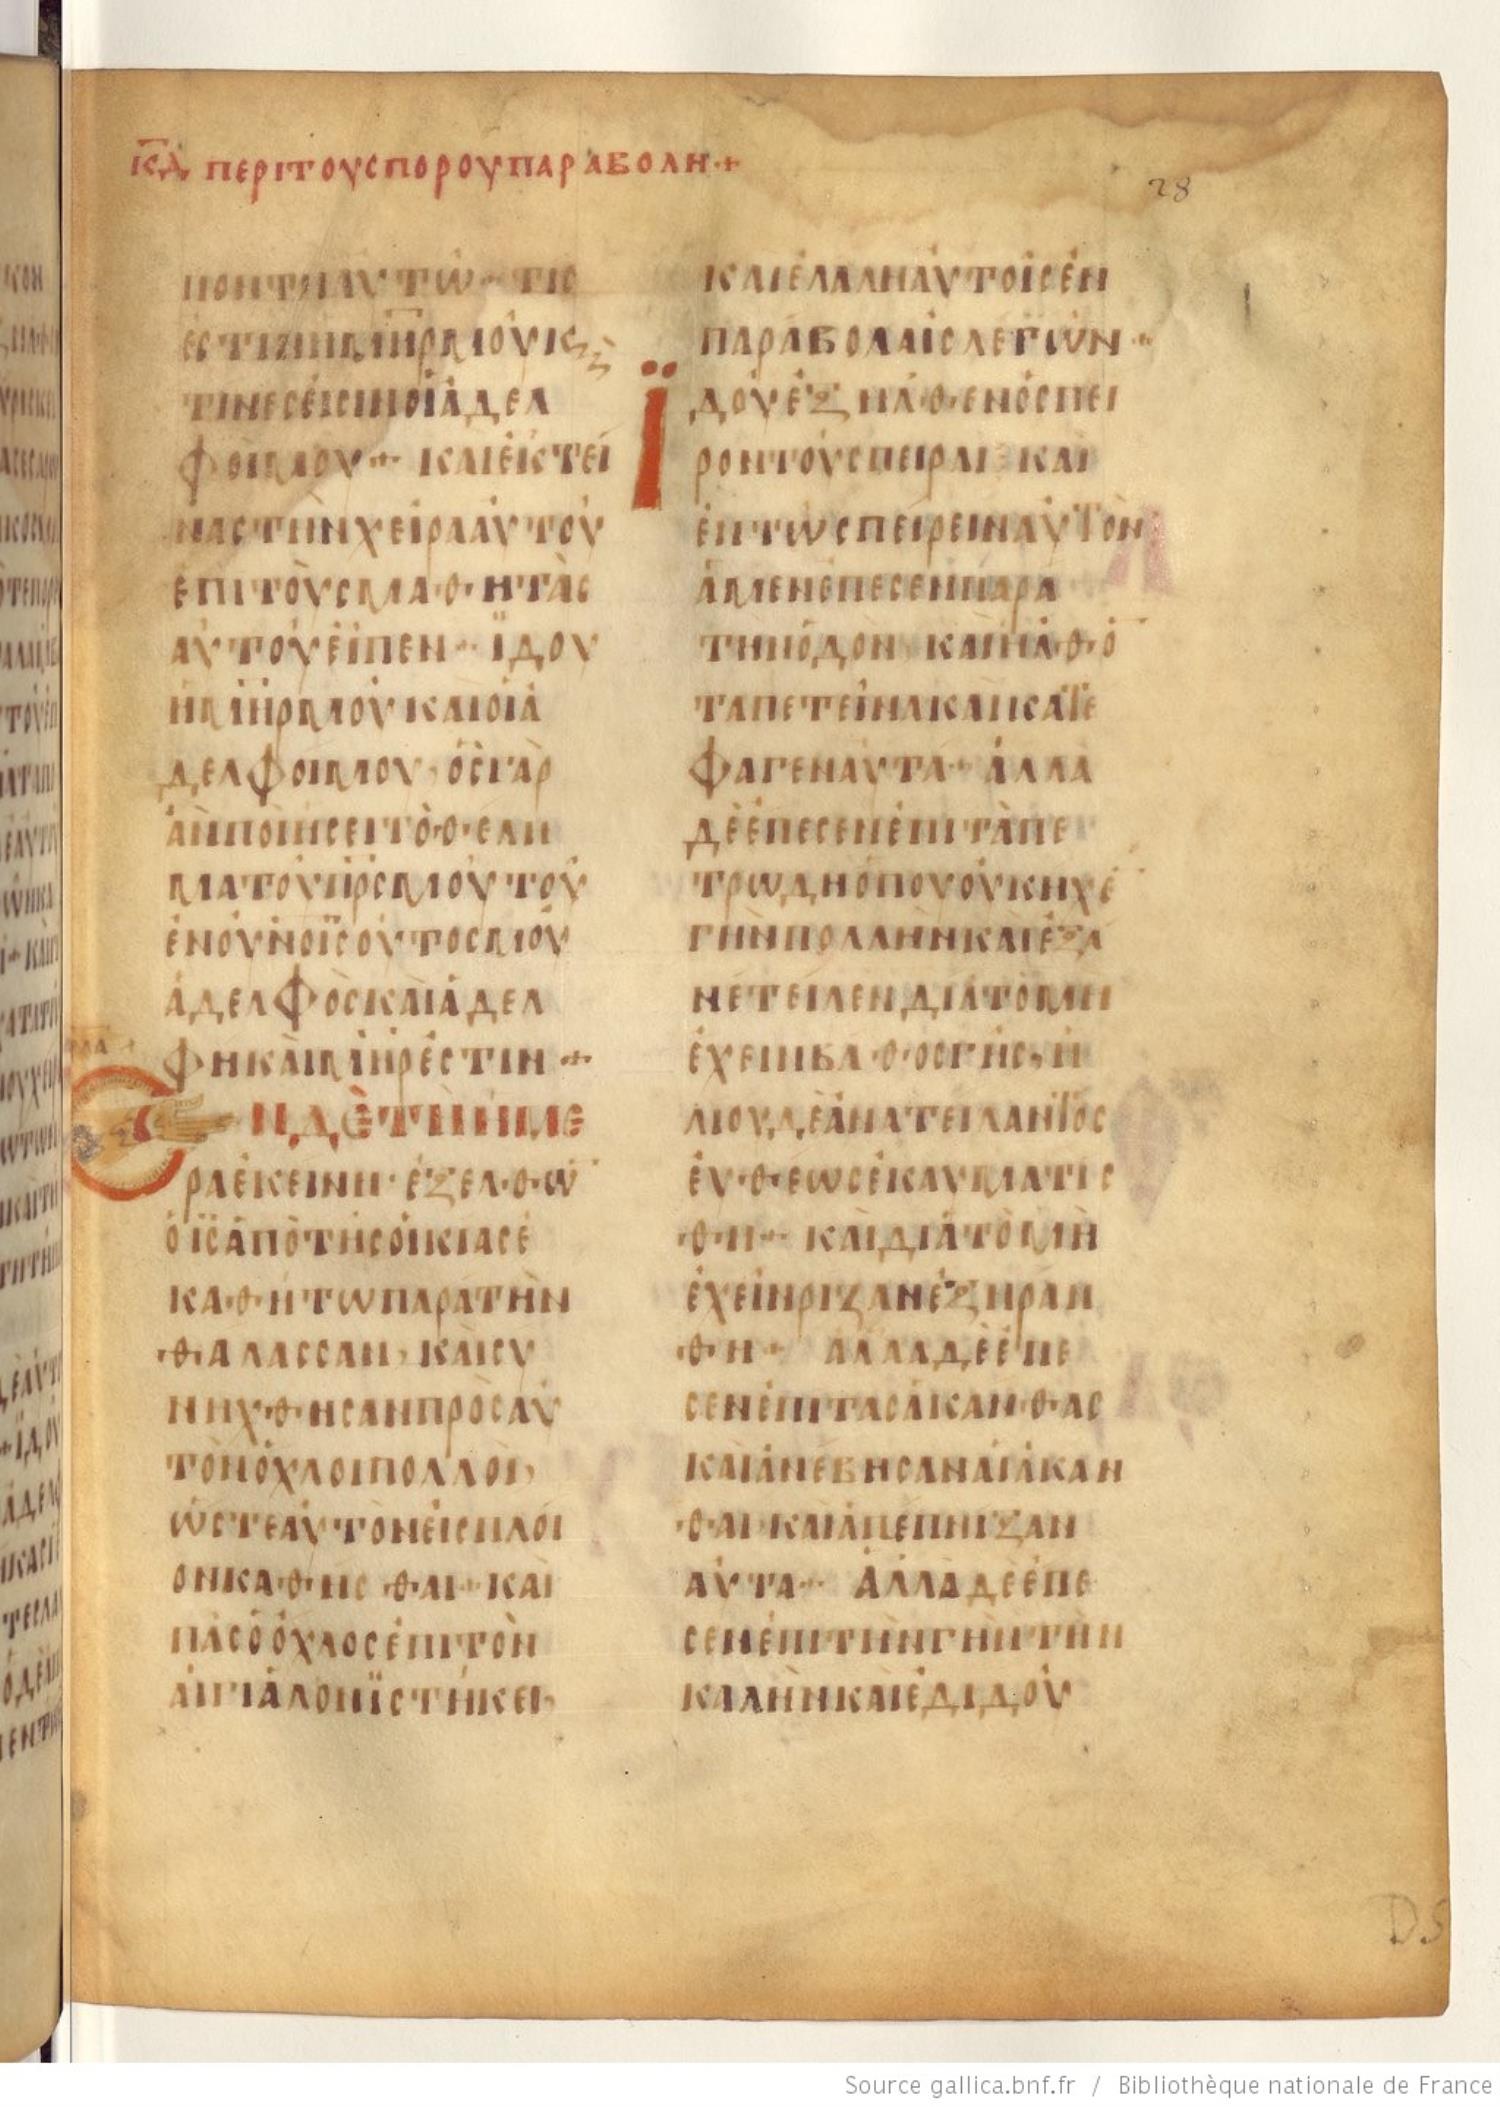 κ̅δ̅ περιτουσπορουπαραβολη·+
28
ποντι αυτω·· τισ
ἐστινἡμ̅η̅ρμουκς
τινεσἐισινὁιἀδελ
φοιμου·+ καιἐκτεί
ναστηνχειρααὑτοῦ
ἐπιτοὺσμαθητὰσ
αὐτοῦεἶπεν·· ϊδου
ἡμ̅η̅ρμουκαιοἱἀ
δελφοιμου, ὁσγὰρ
ἀνποιησειτὸθελη
ματουπ̅ρ̅σμουτοῦ
ἐνοὐνοισουτοσμου
ἀδελφὸσκαὶἀδελ
φηκαιμ̅η̅ρἐστιν·+
Ν δὲτῆἡμε
ραἐκεινη· ἐξελθῶ
ὁι̅σ̅ἀπὸτῆσὀικιασἐ
καθητωπαρατὴν
θαλασσαν, καὶσυ
νηχθησανπρὸσαὐ
τὸνὀχλοιπολλοὶ,
ὡστεαὐτὸνεἰσπλοί
ονκαθησθαι·· και
πᾶσὁὀχλοσἐπιτὸν
ἀιγιἀλονϊστήκει,
καιἐλαληαὐτοῖσἐν
παραβολαῖσλεγων··
Ϊ
δοὐἐξηλθενὁσπεί
ροντοῦσπειραι καὶ
ἐντωσπείρεειναὐτὸν
ἁμενἐπεσενπαρα
τηνὁδὸν καὶηλθο̅
ταπετεινακαικατε
φαγεναὐτά·+ ἀλλα
δὲἐπεσενἐπιτὰπε
τρωδηὁπουοὐκηχε̅
γῆνπολλὴνκαιἐξα
νετειλενδιατομη
ἐχεινβαθοσγῆσ, ἡ
λιουδεἀνατειλαντοσ
ἐυθεωσἐκαυματισ
θη·· καὶδιατὸμὴ
ἐχεινριζανἐξηραν
θη·+ αλλαδὲἐπε
σενἐπιτασἀκανθασ
καὶἀνεβησαναιἀκαν
θαι καιἀπεπνιξαν
αὐτα·· Ἀλλαδὲἐπε
σενἐπιτὴνγῆντὴν
καλὴνκαιἐδιδου
DS
Source gallica.bnf.fr / Bibliothèque nationale de France